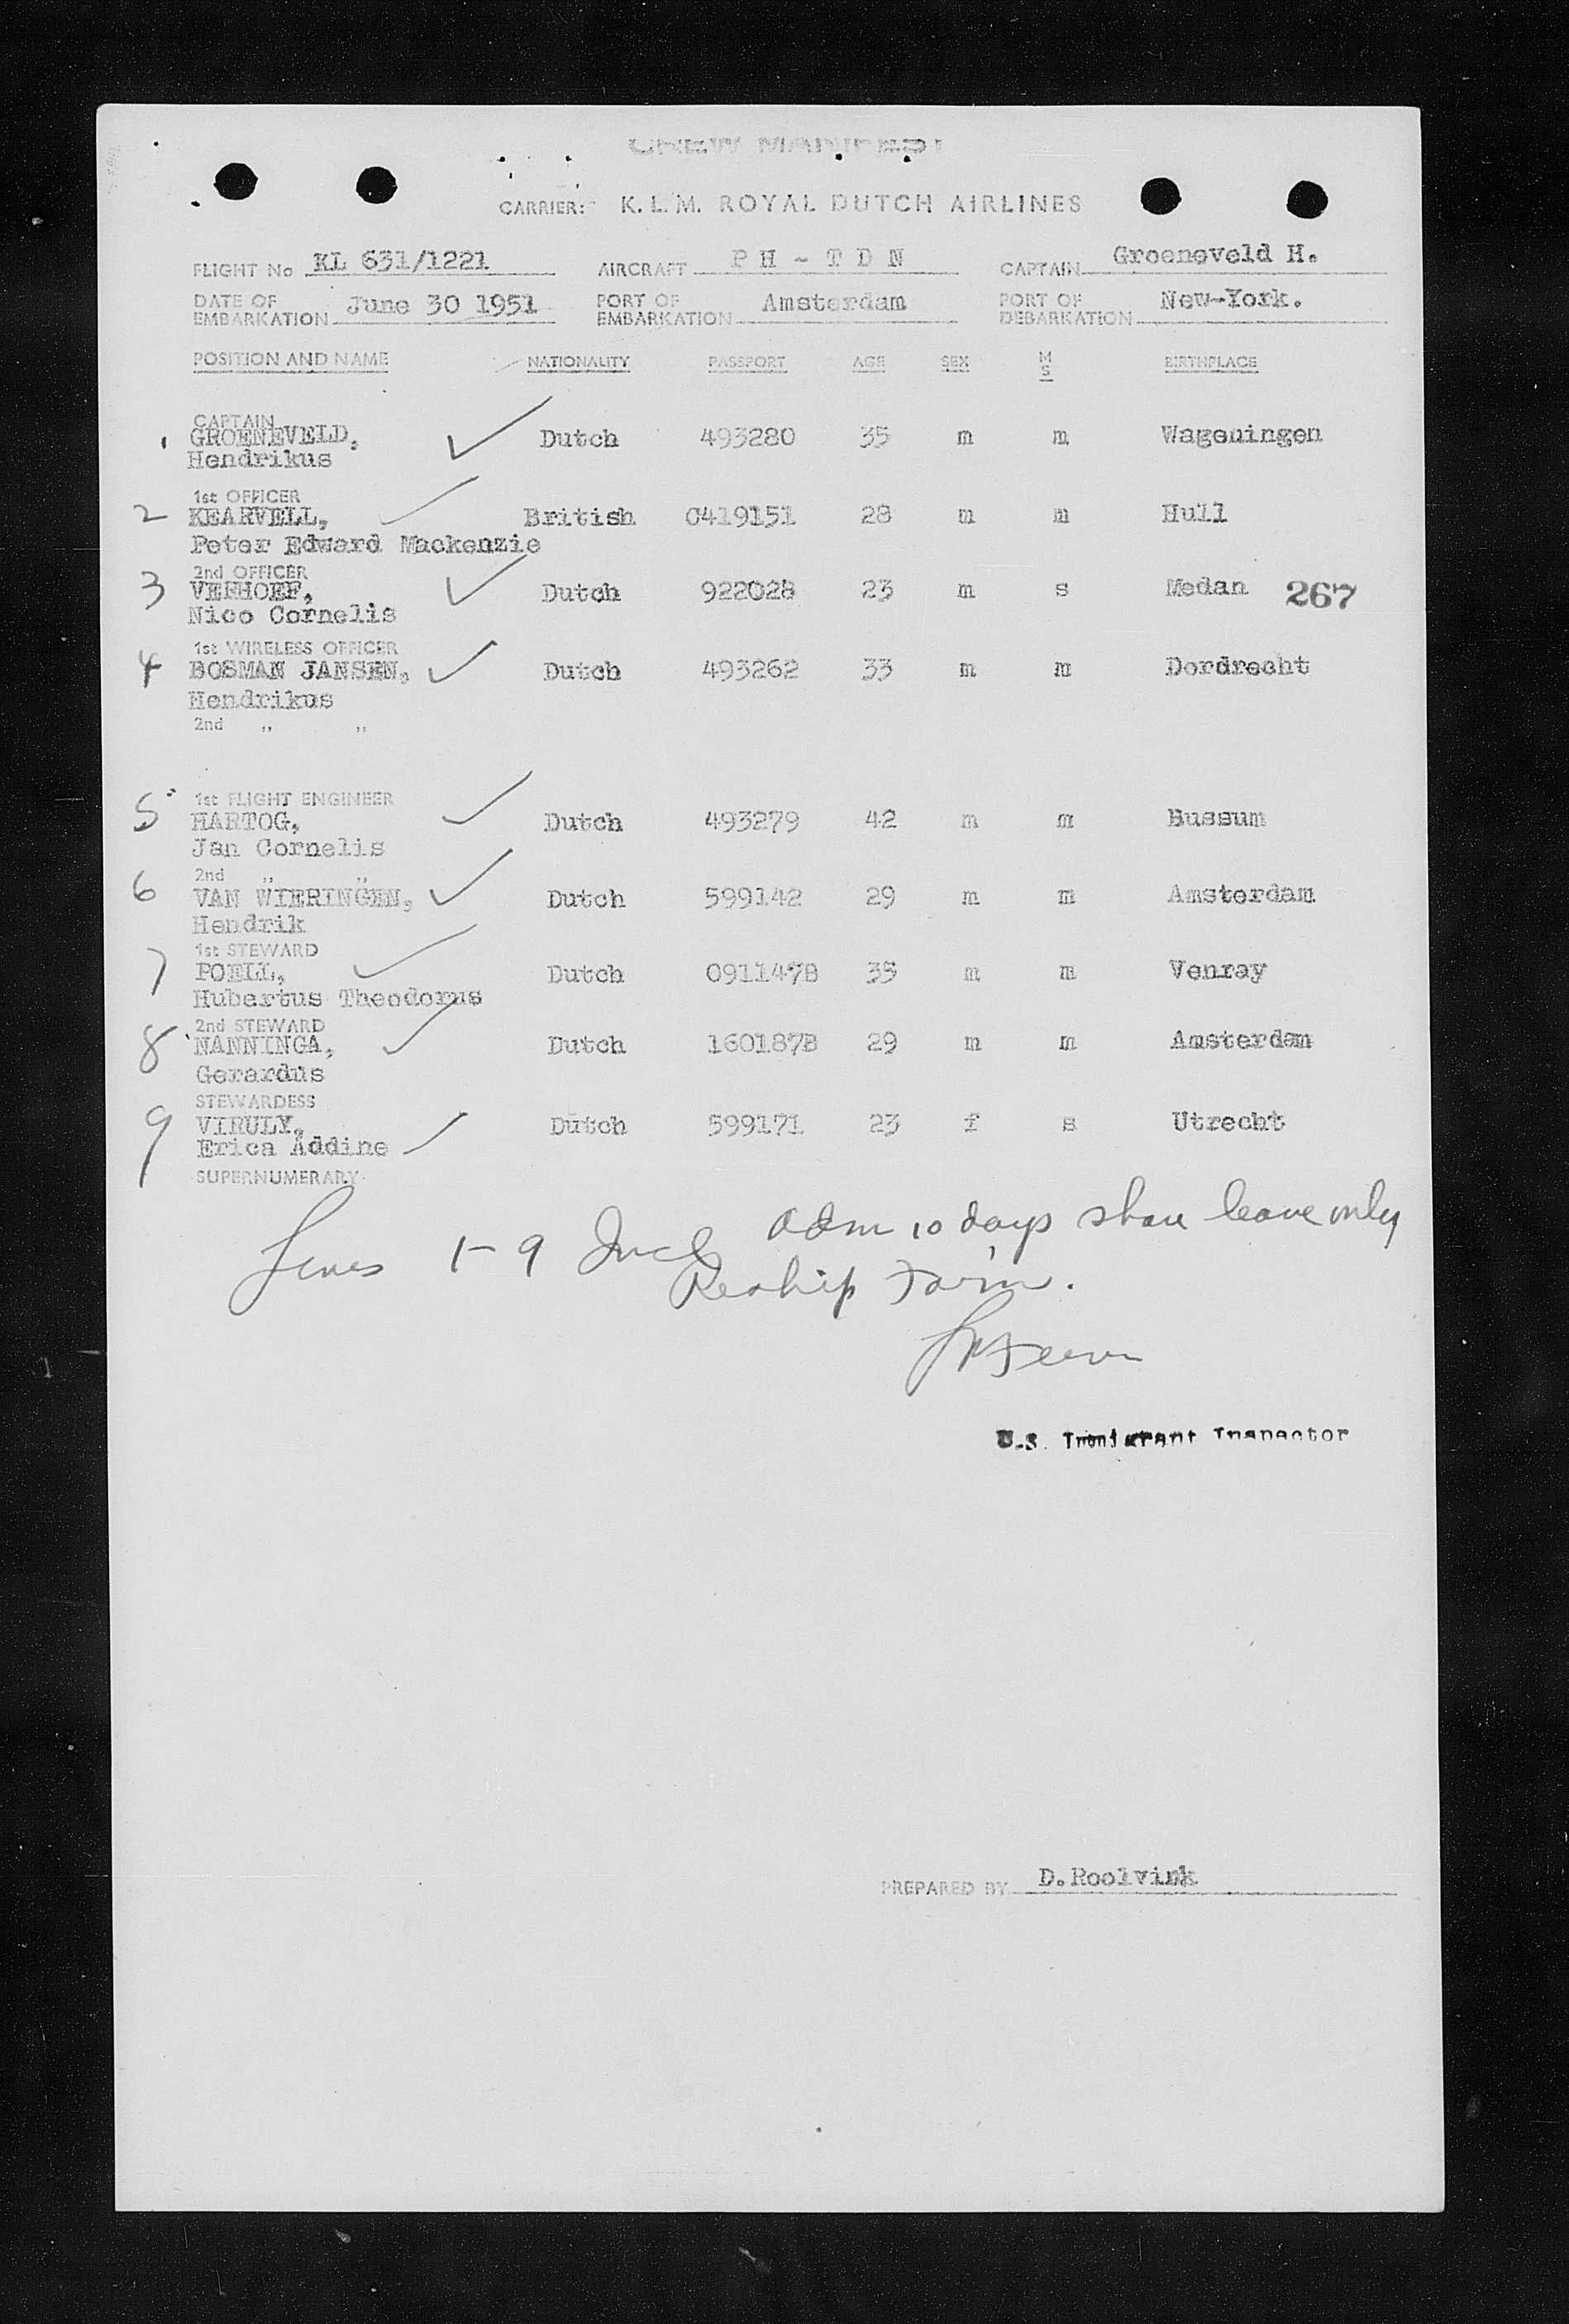 CREW MANIFEST
CARRIER: K.L.M. ROYAL DUTCH AIRLINES
FLIGHT No KL 631/1221 AIRCRAFT P H - T D N CAPTAIN Groeneveld H.
DATE OF EMBARKATION June 30 1951 PORT OF EMBARKATION Amsterdam PORT OF DEBARKATION New-York.
POSITION AND NAME NATIONALITY PASSPORT AGE SEX M S BIRTHPLACE
CAPTAIN
1 GROENEVELD, Dutch 493280 35 m m Wageningen
Hendrikus
1st OFFICER
2 KEARVELL, British C419151 28 m m Hull
Peter Edward Mackenzie
2nd OFFICER
3 VERHOEF, Dutch 922028 23 m s Medan 267
Nico Cornelis
1st WIRELESS OFFICER
4 BOSMAN JANSEN, Dutch 493262 33 m m Dordrecht
Hendrikus
2nd " "
1st FLIGHT ENGINEER
5 HARTOG, Dutch 493279 42 m m Bussum
Jan Cornelis
2nd " "
6 VAN WIERINGEN, Dutch 599142 29 m m Amsterdam
Hendrik
1st STEWARD
7 POELL, Dutch 091147B 35 m m Venray
Hubertus Theodorus
2nd STEWARD
8 NANNINGA, Dutch 160187B 29 m m Amsterdam
Gerardus
STEWARDESS
9 VIRULY, Dutch 599171 23 f s Utrecht
Erica Addine
SUPERNUMERARY
Lines 1-9 Incl Adm 10 days shore leave only
Reship Form.
U.S. Immigrant Inspector
PREPARED BY D.Roolvink